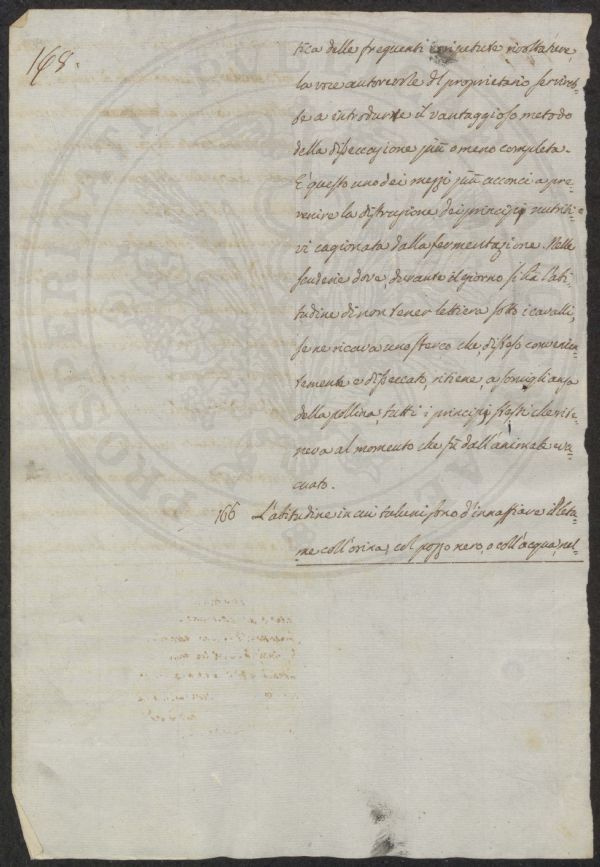 168.
tica delle frequenti irripetute rivoltature,
la voce autorevole del proprietario servireb=
be a introdurre il vantaggioso metodo
della disseccazione più o meno completa.
E' questo uno dei mezzi più acconci a pre=
venire la distruzione dei principj nutriti=
vi cagionata dalla fermentazione. Nelle
scuderie dove, durante il giorno si ha l'abi=
tudine di non tener lettiera sotto i cavalli,
se ne ricava uno sterco che, disteso convenien=
temente e disseccato, ritiene, a somiglianza
della pollina, tutti i principj stessi che rite=
neva al momento che fu dall'animale eva=
cuato.
166 L'abitudine in cui taluni sono d'innaffiare il leta=
me coll'orina, col pozzo nero, o coll'acqua, nel=
PROSPERITATI PVBLICAE